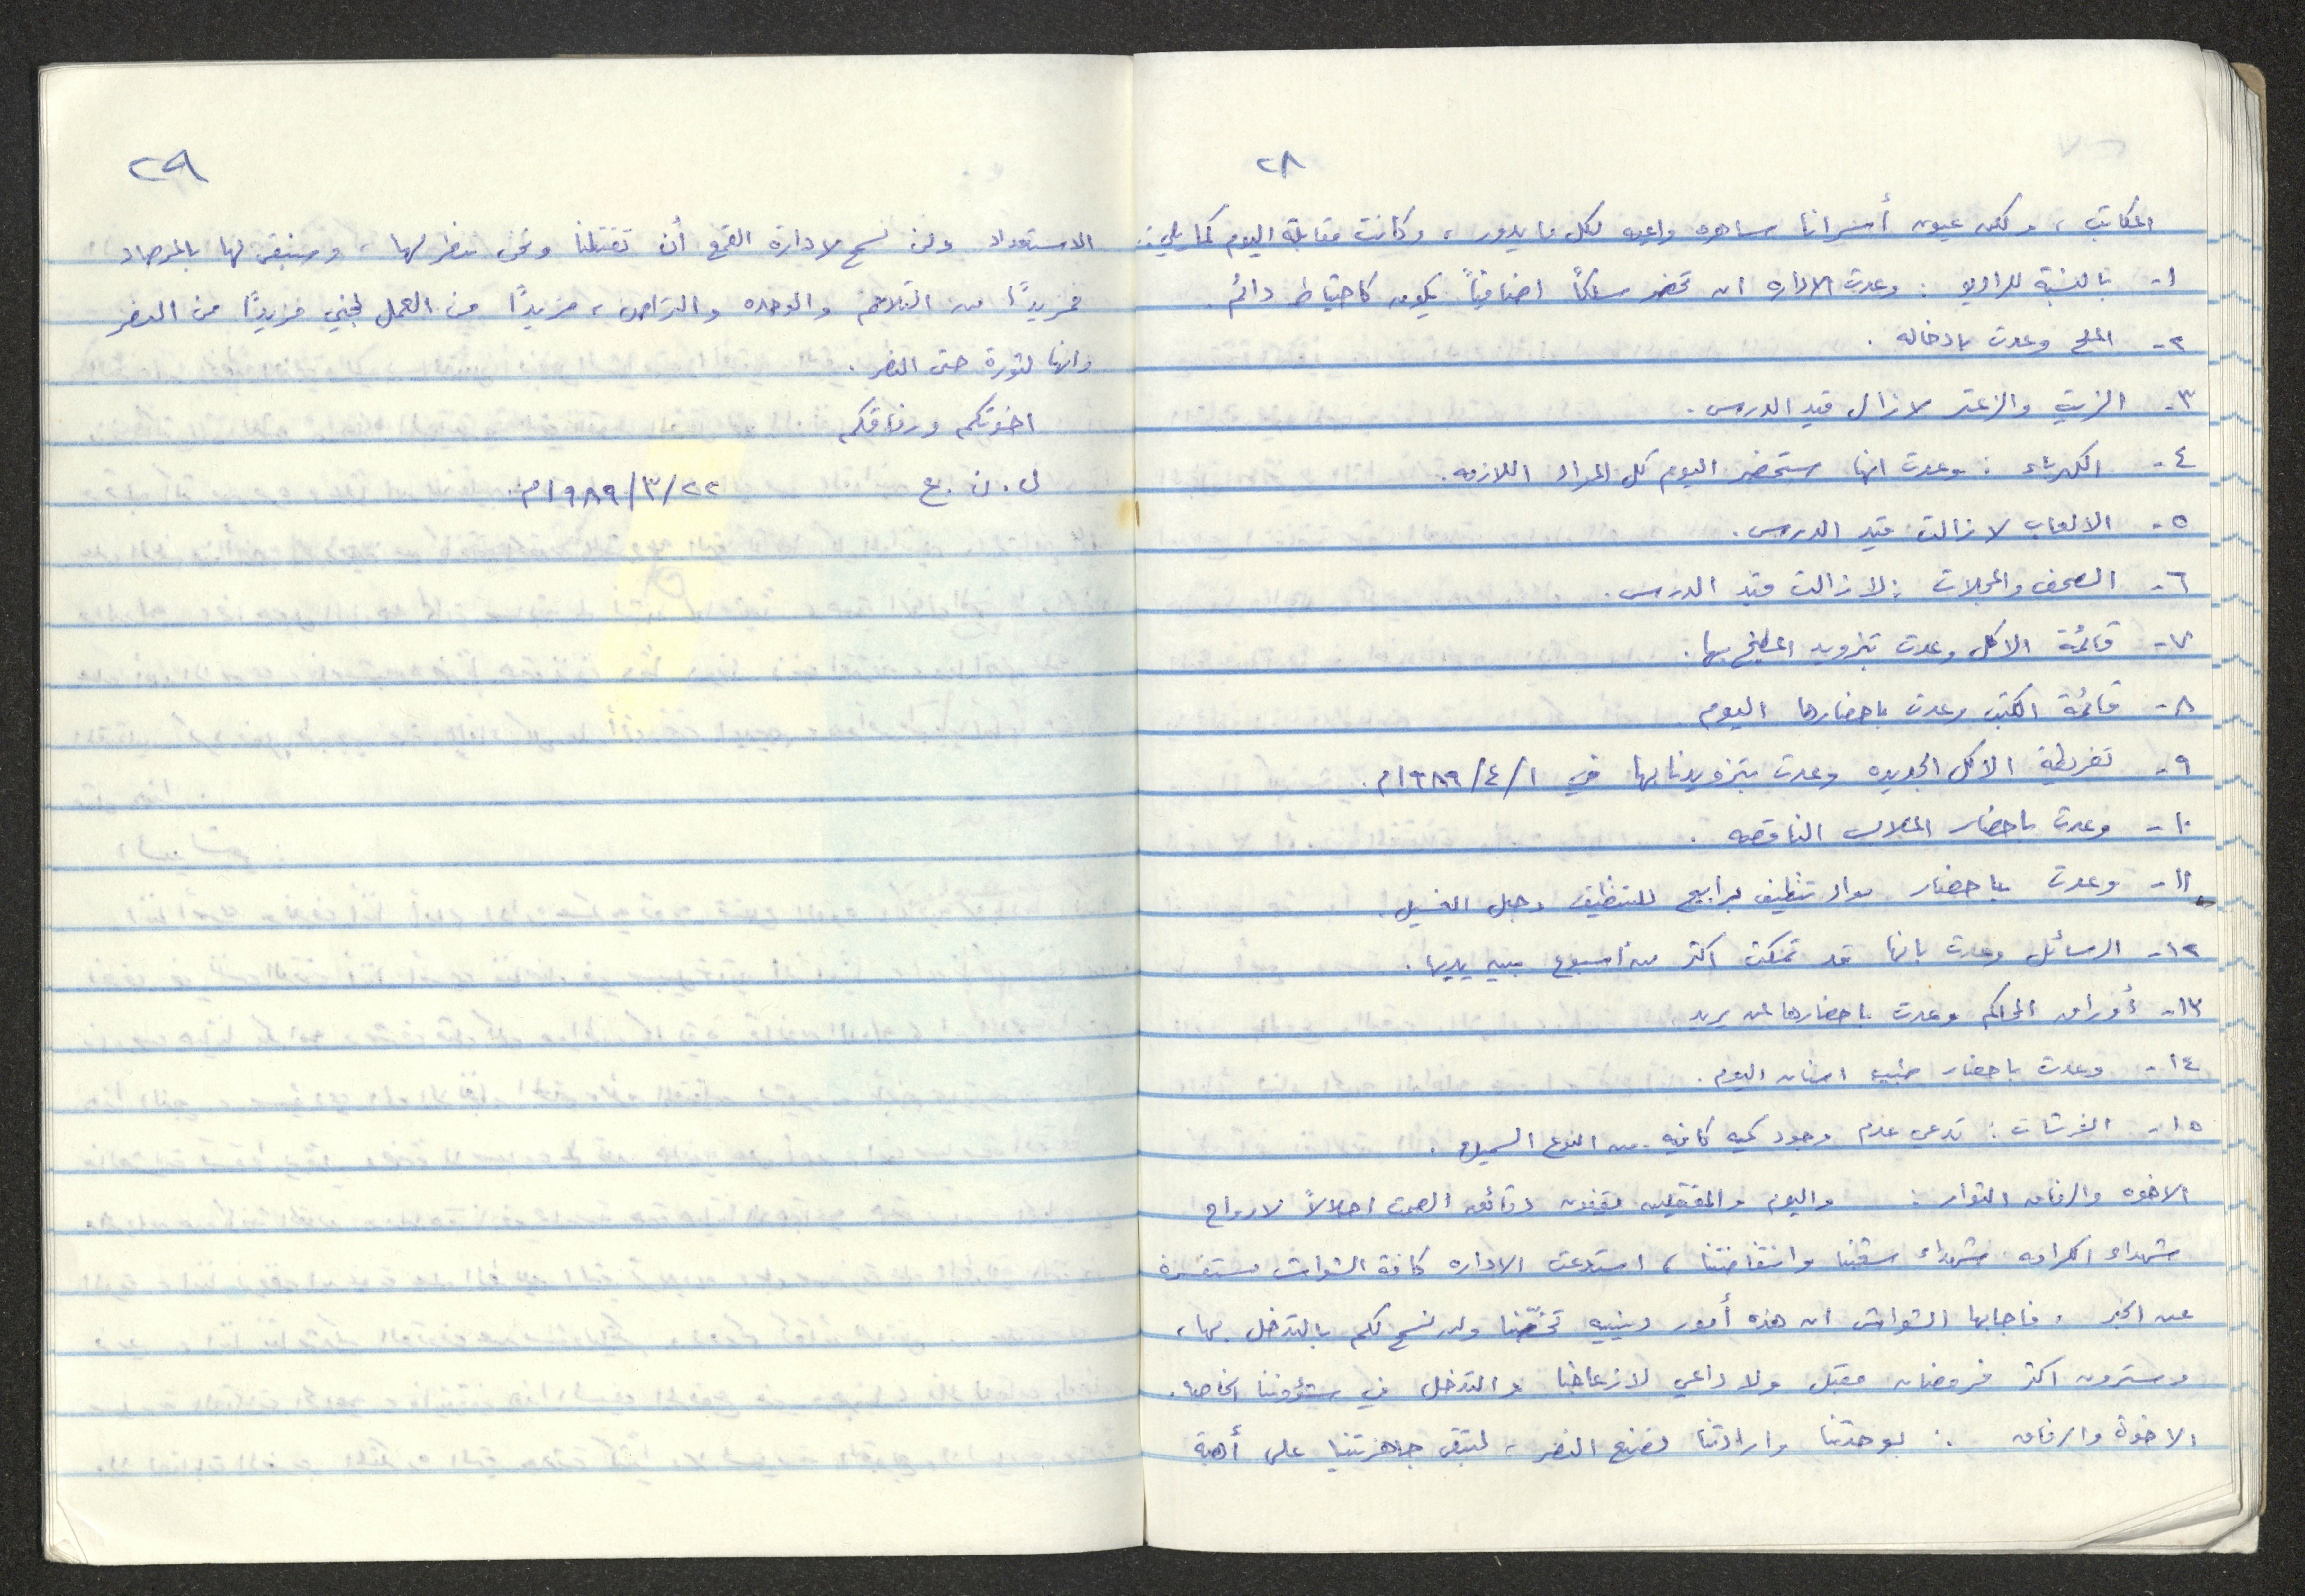 ٢٨
المكاتب ، ولكن عيون أسرانا ساهره واعيه لكل ما يدور ، وكانت مقابلة اليوم كما يلي :
١- بالنسبة للراديو : وعدت الاداره ان تحضر سلكاً اضافياً يكون كاحتياط دائم .
٢- الملح وعدت بادخاله .
٣- الزيت والزعتر لا زال قيد الدرس .
٤- الكهرباء : وعدت انها ستحضر اليوم كل المواد اللازمه .
٥- الالعاب لا زالت قيد الدرس .
٦- الصحف والمجلات : لا زالت قيد الدرس .
٧- قائمة الاكل وعدت بتزويد المطبخ بها .
٨- قائمة الكتب وعدت باحضارها اليوم
٩- تفريطة الاكل الجديده وعدت بتزويدنا بها في ١/٤/١٩٨٩م .
١٠- وعدت باحضار الملابس الناقصه .
١١- وعدت باحضار مواد تنظيف برابيج للتنظيف وحبل الغسيل .
١٢- الرسائل وعدت بانها قد تمكث اكثر من اسبوع بين يديها .
١٣- أوراق المحاكم وعدت باحضارها لمن يريد
١٤- وعدت باحضار طبيب اسنان اليوم .
١٥- الفرشات : تدعي عدم وجود كميه كافيه من النوع السميك .
الاخوه والرفاق الثوار : واليوم والمعتقلين يقفون دقائق الصمت اجلالاً لارواح
شهداء الكرامه شهداء شعبنا وانتفاضتنا ، استدعت الاداره كافة الشواش مستفسرة
عن الخبر ، فاجابها الشواش ان هذه أمور دينيه تخصّنا ولن نسمح لكم بالتدخل بها ،
وسترون اكثر فرمضان مقبل ولا داعي لازعاجنا والتدخل في شؤوننا الخاصه .
الاخوة والرفاق : بوحدتنا وارادتنا نصنع النصر ، لتبقى جاهزيتنا على أهبة
٢٩
الاستعداد ولن نسمح لادارة القمع أن تقتلنا ونحن ننظر لها ، وسنبقى لها بالمرصاد
فمزيدًا من التلاحم والوحده والتراص ، مزيدًا من العمل لجني مزيدًا من النصر
وانها لثورة حتى النصر .
اخوتكم ورفاقكم
ل . ن . ع ٢٢/٣/١٩٨٩م .